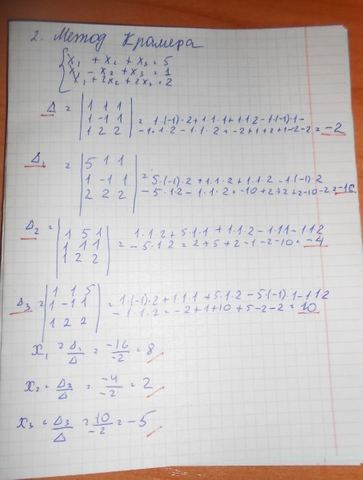 2. Метод Крамера
x₁ + x₂ + x₃ = 5
x₁ - x₂ + x₃ = 1
x₁ + 2x₂ + 2x₃ = 2
Δ = |1 1 1|
|1 -1 1| = 1·(-1)·2+1·1·1+1·1·2-1·(-1)·1-
|1 2 2| -1·1·2-1·1·2=-2+1+2+1-2-2=-2
Δ₁ = |5 1 1|
|1 -1 1| = 5·(-1)·2+1·1·2+1·1·2-1·(-1)·2
|2 2 2| -5·1·2-1·1·2=-10+2+2+2-10-2=-16
Δ₂ = |1 5 1|
|1 1 1| = 1·1·2+5·1·1+1·1·2-1·1·1-1·1·2
|1 2 2| -5·1·2=2+5+2-1-2-10=-4
Δ₃ = |1 1 5|
|1 -1 1| = 1·(-1)·2+1·1·1+5·1·2-5(-1)·1-1·1·2
|1 2 2| -1·1·2=-2+1+10+5-2-2=10
x₁ = Δ₁/Δ = -16/-2 = 8
x₂ = Δ₂/Δ = -4/-2 = 2
x₃ = Δ₃/Δ = 10/-2 = -5